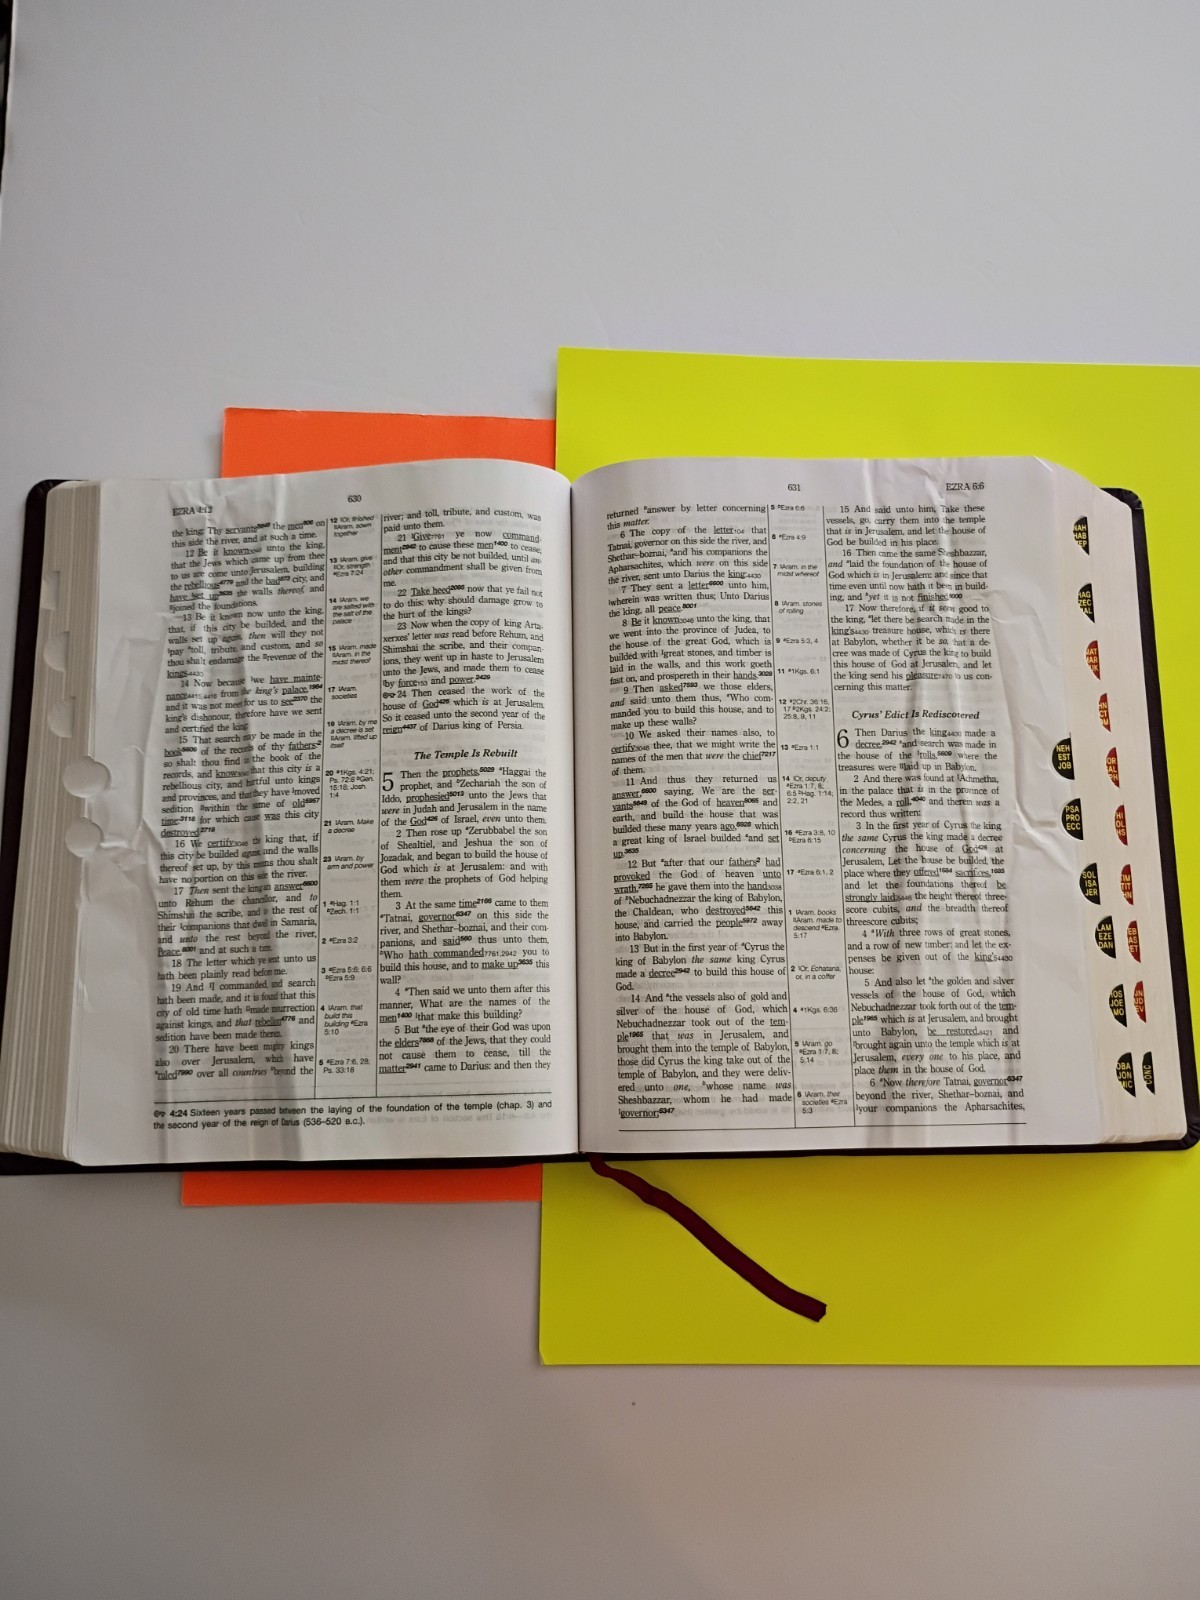 EZRA 4:12
630
the king: Thy servants5649 the men606 on
this side the river, and at such a time.
12 Be it known3046 unto the king,
that the Jews which came up from thee
to us are come unto Jerusalem, building
the rebellious4779 and the bad873 city, and
have set up3635 the walls thereof, and
joined the foundations.
13 Be it known now unto the king,
that, if this city be builded, and the
walls set up again, then will they not
pay toll, tribute, and custom, and so
thou shalt endamage the revenue of the
kings.4430
14 Now because we have mainte-
nance4415,4416 from the king's palace,1965
and it was not meet for us to see2370 the
king's dishonour, therefore have we sent
and certified the king;
15 That search may be made in the
book5609 of the records of thy fathers:2
so shalt thou find in the book of the
records, and know3046 that this city is a
rebellious city, and hurtful unto kings
and provinces, and that they have moved
sedition within the same of old5957
time:3118 for which cause was this city
destroyed.2718
16 We certify3046 the king that, if
this city be builded again, and the walls
thereof set up, by this means thou shalt
have no portion on this side the river.
17 Then sent the king an answer6600
unto Rehum the chancellor, and to
Shimshai the scribe, and to the rest of
their companions that dwell in Samaria,
and unto the rest beyond the river,
Peace,8001 and at such a time.
18 The letter which ye sent unto us
hath been plainly read before me.
19 And I commanded, and search
hath been made, and it is found that this
city of old time hath made insurrection
against kings, and that rebellion4776 and
sedition have been made therein.
20 There have been mighty kings
also over Jerusalem, which have
ruled7990 over all countries beyond the
12 Or, finished
Aram. sown
together
13 Aram. give
Or, strength
Ezra 7:24
14 Aram. we
are salted with
the salt of the
palace
15 Aram. made
Aram. in the
midst thereof
17 Aram.
societies
19 Aram. by me
a decree is set
Aram. lifted up
itself
20 1Kgs. 4:21;
Ps. 72:8 Gen.
15:18; Josh.
1:4
21 Aram. Make
a decree
23 Aram. by
arm and power
1 Hag. 1:1
Zech. 1:1
2 Ezra 3:2
3 Ezra 5:6; 6:6
Ezra 5:9
4 Aram. that
build this
building Ezra
5:10
5 Ezra 7:6, 28;
Ps. 33:18
river; and toll, tribute, and custom, was
paid unto them.
21 Give7761 ye now command-
ment2942 to cause these men1400 to cease,
and that this city be not builded, until an-
other commandment shall be given from
me.
22 Take heed2095 now that ye fail not
to do this: why should damage grow to
the hurt of the kings?
23 Now when the copy of king Arta-
xerxes' letter was read before Rehum, and
Shimshai the scribe, and their compan-
ions, they went up in haste to Jerusalem
unto the Jews, and made them to cease
by force153 and power.2429
24 Then ceased the work of the
house of God426 which is at Jerusalem.
So it ceased unto the second year of the
reign4437 of Darius king of Persia.
The Temple Is Rebuilt
5 Then the prophets,5029 Haggai the
prophet, and Zechariah the son of
Iddo, prophesied5013 unto the Jews that
were in Judah and Jerusalem in the name
of the God426 of Israel, even unto them.
2 Then rose up Zerubbabel the son
of Shealtiel, and Jeshua the son of
Jozadak, and began to build the house of
God which is at Jerusalem: and with
them were the prophets of God helping
them.
3 At the same time2166 came to them
Tatnai, governor6347 on this side the
river, and Shethar-boznai, and their com-
panions, and said560 thus unto them,
Who hath commanded7761,2942 you to
build this house, and to make up3635 this
wall?
4 Then said we unto them after this
manner, What are the names of the
men1400 that make this building?
5 But the eye of their God was upon
the elders7868 of the Jews, that they could
not cause them to cease, till the
matter2941 came to Darius: and then they
4:24 Sixteen years passed between the laying of the foundation of the temple (chap. 3) and
the second year of the reign of Darius (536–520 B.C.).
631
EZRA 6:6
returned answer by letter concerning
this matter.
6 The copy of the letter104 that
Tatnai, governor on this side the river, and
Shethar-boznai, and his companions the
Apharsachites, which were on this side
the river, sent unto Darius the king:4430
7 They sent a letter6600 unto him,
wherein was written thus; Unto Darius
the king, all peace.8001
8 Be it known3046 unto the king, that
we went into the province of Judea, to
the house of the great God, which is
builded with great stones, and timber is
laid in the walls, and this work goeth
fast on, and prospereth in their hands.3028
9 Then asked7593 we those elders,
and said unto them thus, Who com-
manded you to build this house, and to
make up these walls?
10 We asked their names also, to
certify3046 thee, that we might write the
names of the men that were the chief7217
of them.
11 And thus they returned us
answer,6600 saying, We are the ser-
vants5649 of the God of heaven8065 and
earth, and build the house that was
builded these many years ago,6928 which
a great king of Israel builded and set
up.3635
12 But after that our fathers2 had
provoked the God of heaven unto
wrath,7265 he gave them into the hand3028
of Nebuchadnezzar the king of Babylon,
the Chaldean, who destroyed5642 this
house, and carried the people5972 away
into Babylon.
13 But in the first year of Cyrus the
king of Babylon the same king Cyrus
made a decree2942 to build this house of
God.
14 And the vessels also of gold and
silver of the house of God, which
Nebuchadnezzar took out of the tem-
ple1965 that was in Jerusalem, and
brought them into the temple of Babylon,
those did Cyrus the king take out of the
temple of Babylon, and they were deliv-
ered unto one, whose name was
Sheshbazzar, whom he had made
governor;6347
5 Ezra 6:6
6 Ezra 4:9
7 Aram. in the
midst whereof
8 Aram. stones
of rolling
9 Ezra 5:3, 4
11 1Kgs. 6:1
12 2Chr. 36:16,
17 2Kgs. 24:2;
25:8, 9, 11
13 Ezra 1:1
14 Or, deputy
Ezra 1:7, 8;
6:5 Hag. 1:14;
2:2, 21
16 Ezra 3:8, 10
Ezra 6:15
17 Ezra 6:1, 2
1 Aram. books
Aram. made to
descend Ezra
5:17
2 Or, Ecbatana;
or, in a coffer
4 1Kgs. 6:36
5 Aram. go
Ezra 1:7, 8;
5:14
6 Aram. their
societies Ezra
5:3
15 And said unto him, Take these
vessels, go, carry them into the temple
that is in Jerusalem, and let the house of
God be builded in his place.
16 Then came the same Sheshbazzar,
and laid the foundation of the house of
God which is in Jerusalem: and since that
time even until now hath it been in build-
ing, and yet it is not finished.8000
17 Now therefore, if it seem good to
the king, let there be search made in the
king's4430 treasure house, which is there
at Babylon, whether it be so, that a de-
cree was made of Cyrus the king to build
this house of God at Jerusalem, and let
the king send his pleasure7470 to us con-
cerning this matter.
Cyrus' Edict Is Rediscovered
6 Then Darius the king4430 made a
decree,2942 and search was made in
the house of the rolls,5609 where the
treasures were laid up in Babylon.
2 And there was found at Achmetha,
in the palace that is in the province of
the Medes, a roll,4040 and therein was a
record thus written:
3 In the first year of Cyrus the king
the same Cyrus the king made a decree
concerning the house of God426 at
Jerusalem, Let the house be builded, the
place where they offered1684 sacrifices,1685
and let the foundations thereof be
strongly laid;5446 the height thereof three-
score cubits, and the breadth thereof
threescore cubits;
4 With three rows of great stones,
and a row of new timber: and let the ex-
penses be given out of the king's4430
house:
5 And also let the golden and silver
vessels of the house of God, which
Nebuchadnezzar took forth out of the tem-
ple1965 which is at Jerusalem, and brought
unto Babylon, be restored,8421 and
brought again unto the temple which is at
Jerusalem, every one to his place, and
place them in the house of God.
6 Now therefore Tatnai, governor6347
beyond the river, Shethar-boznai, and
your companions the Apharsachites,
NEH
EST
JOB
PSA
PRO
ECC
SOL
ISA
JER
LAM
EZE
DAN
JOE
OBA
JON
MIC
NAH
HAB
HAG
ZEC
CONC